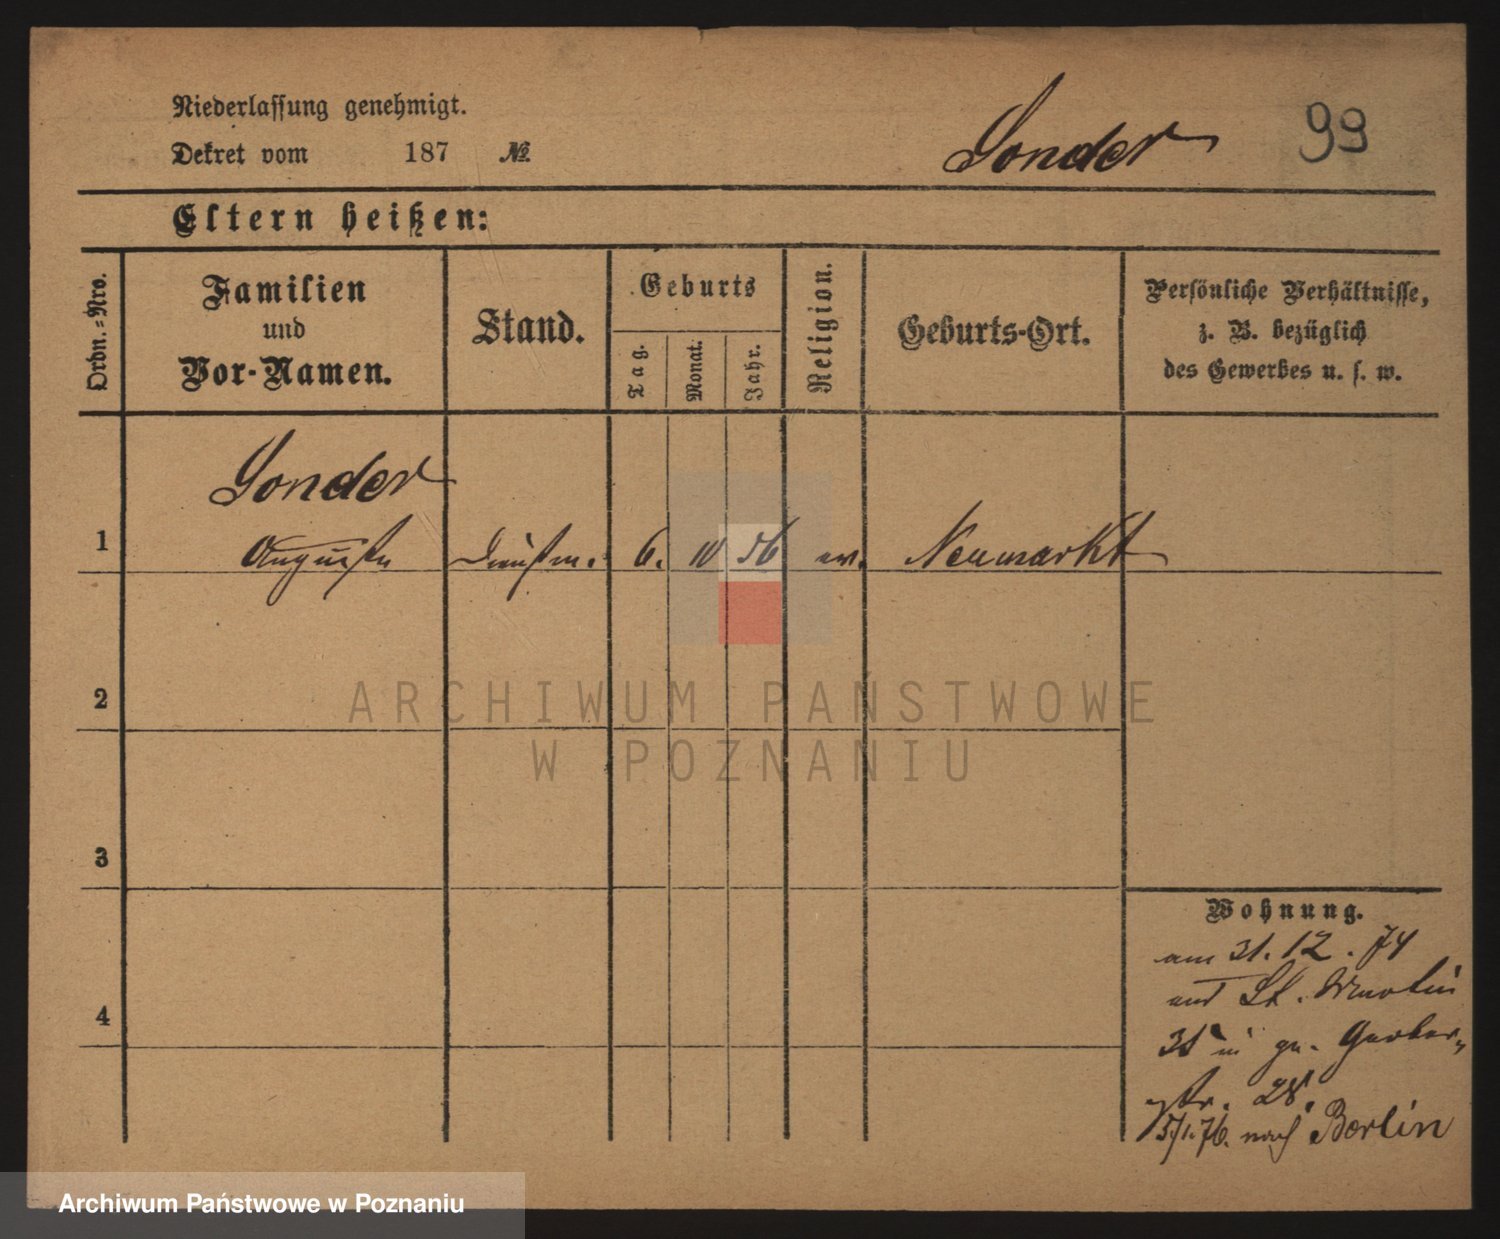 Niederlassung genehmigt.
Dekret vom 187 №
Sonder 99
Eltern heißen:
Ordn.=Nro.
Familien
und
Vor-Namen.
Stand.
Geburts
Tag.
Monat.
Jahr.
Religion.
Geburts-Ort.
Persönliche Verhältnisse,
z. B. bezüglich
des Gewerbes u. s. w.
Sonder
1 Auguste Dienstm. 6. 10 56 ev. Neumarkt
2
3
4
ARCHIWUM PAŃSTWOWE
W POZNANIU
Wohnung.
am 31. 12. 74
aus St. Martin
in gr. Gerber-
str. 28.
5/1. 76. nach Berlin
Archiwum Państwowe w Poznaniu